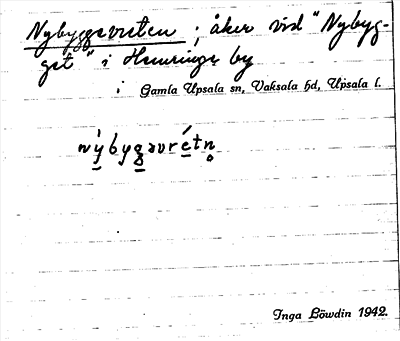 Nybyggsvreten ; åker vid "Nybyg-
get" i Hemringe by
i Gamla Upsala sn, Vaksala hd, Upsala l.
Inga Löwdin 1942.